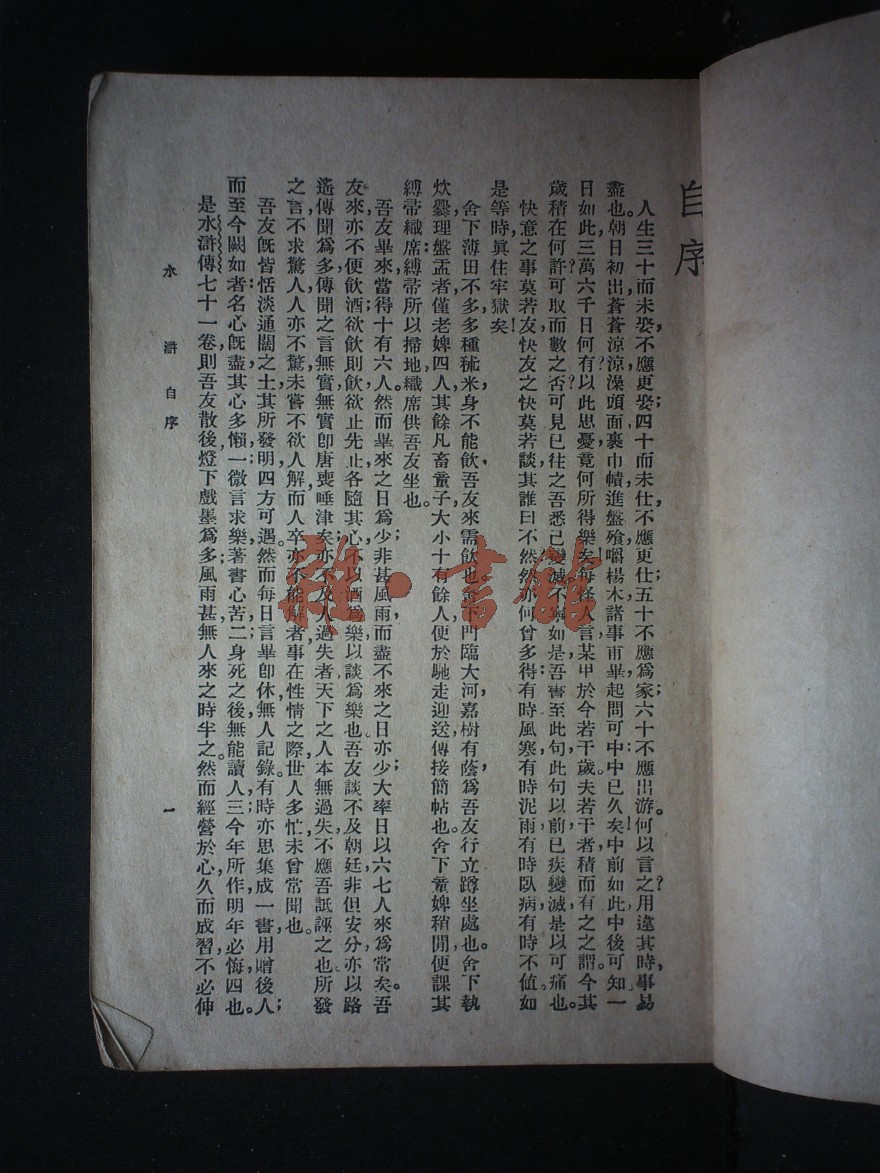 自序
人生三十而未娶,不應更娶;四十而未仕,不應更仕;五十不應爲家;六十不應出游。何以言之?用違其時,事易
盡也。朝日初出,蒼蒼涼涼,澡頭面,裹巾幘,進盤飧,嚼楊木,諸事甫畢,起問可中,中已久矣!中前如此,中後可知。一
日如此,三萬六千日何有!以此思憂,竟何所得樂矣!每怪人言某甲於今若干歲。夫若干者,積而有之之謂。今其
歲積在何許?可取而數之否?可見已往之吾,悉已變滅。不寧如是,吾書至此句,此句以前已疾變滅,是以可痛也。
快意之事莫若友,快友之快莫若談,其誰曰不然?然亦何曾多得:有時風寒,有時泥雨,有時臥病,有時不値,如
是等時,眞住牢獄矣!
舍下薄田不多,多種秫米,身不能飮,吾友來需飮也。舍下門臨大河,嘉樹有蔭,爲吾友行立蹲坐處也。舍下執
炊爨理盤盂者,僅老婢四人;其餘凡畜童子大小十有餘人,便於馳走迎送,傳接簡帖也。舍下童婢稍閒,便課其
縛帚織席;縛帚所以掃地,織席供吾友坐也。
吾友畢來,當得十有六人。然而畢來之日爲少,非甚風雨,而盡不來之日亦少;大率日以六七人來爲常矣。吾
友來,亦不便飮酒;欲飮則飮,欲止先止,各隨其心,不以酒爲樂,以談爲樂也。吾友談不及朝廷,非但安分,亦以路
遙,傳聞爲多;傳聞之言無實,無實卽唐喪唾津矣;亦不及人過失者,天下之人本無過失,不應吾詆誣之也。所發
之言,不求驚人,人亦不驚;未嘗不欲人解,而人卒亦不能解者,事在性情之際,世人多忙,未曾常聞也。
吾友旣皆恬淡通闊之士,其所發明,四方可遇。然而每日言畢卽休,無人記錄。有時亦思集成一書,用贈後人;
而至今闕如者:名心旣盡,其心多懶,一;微言求樂,著書心苦,二;身死之後,無能讀人,三;今年所作,明年必悔,四也。
是水滸傳七十一卷,則吾友散後,燈下戲墨爲多;風雨甚,無人來之時半之。然而經營於心,久而成習,不必伸
水滸 自序
一
雜·書館